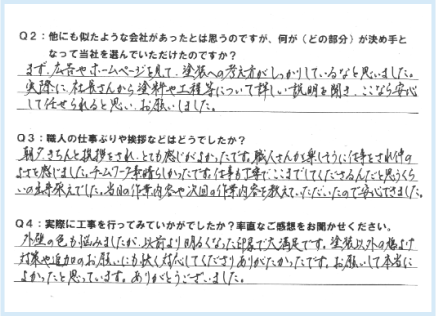 Q2：他にも似たような会社があったとは思うのですが、何が（どの部分）が決め手と
なって当社を選んでいただけたのですか？
まず、広告やホームページを見て、塗装への考え方がしっかりしているなと思いました。
実際に、社長さんから塗料や工程等について詳しい説明を聞き、ここなら安心
して任せられると思い、お願いしました。
Q3：職人の仕事ぶりや挨拶などはどうでしたか？
朝夕きちんと挨拶をされ、とても感じがよかったです。職人さんが楽しそうに仕事をされ仲の
よさを感じました。チームワーク素晴らしかったです。仕事も丁寧でここまでしてくださるんだと思うくら
いの出来栄えでした。当日の作業内容や次回の作業内容を教えていただいたので安心できました。
Q4：実際に工事を行ってみていかがでしたか？率直なご感想をお聞かせください。
外壁の色も悩みましたが、以前より明るくなった印象で大満足です。塗装以外の
対策や追加のお願いにも快く対応してくださりありがたかったです。お願いして本当に
よかったと思っています。ありがとうございました。